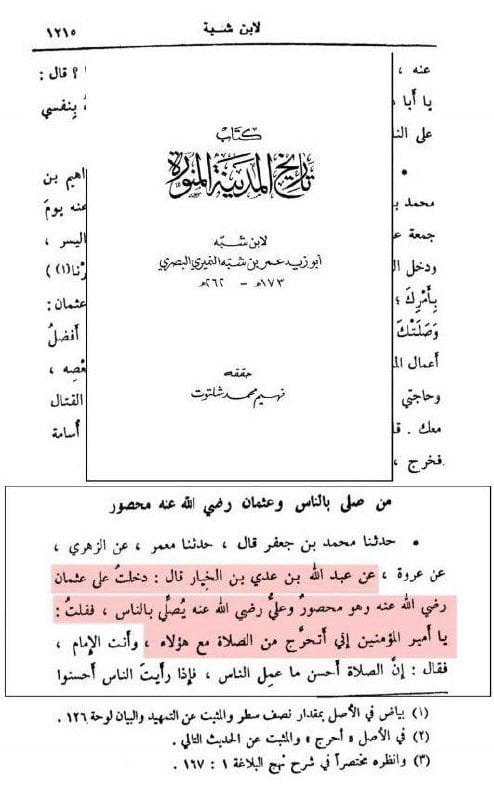 لابن شبة ١٢١٥
عنه ، ؟ قال :
يا أبا بنفسي
على الناس
• اهيم بن
محمد عنه يوم
جمعة اليسر ،
ودخل نا(١))
بِأَمْرِكَ ؛ عثمان :
وَصَلَتْكَ أفضلُ
أعمال بعْصِه ،
وحاجتي القتال
معك . أسامة
فخرج ،
كتاب
تاريخ المدينة المنورة
لابن شبّه
أبو زيد عمر بن شبّه النميري البصري
١٧٣هـ - ٢٦٢هـ
حققه
فهيم محمد شلتوت
من صلى بالناس وعثمان رضي الله عنه محصور
• حدثنا محمد بن جعفر قال ، حدثنا معمر ، عن الزهري ،
عن عروة ، عن عبد الله بن عدي بن الخيار قال : دخلتُ على عثمان
رضي الله عنه وهو محصورٌ وعليٌّ رضي الله عنه يُصَلِّي بالناس ، فقلتُ :
يا أمير المؤمنين إني أتحرَّج من الصلاة مع هؤلاء ، وأنت الإمام ،
فقال : إنَّ الصلاة أحسن ما عمِل الناس ، فإذا رأيتَ الناس أحسنوا
(١) بياض في الأصل بمقدار نصف سطر والمثبت عن التمهيد والبيان لوحة ١٢٦ .
(٢) في الأصل « أحرج » والمثبت عن الحديث التالي .
(٣) وانظره مختصراً في شرح نهج البلاغة ١ : ١٦٧ .